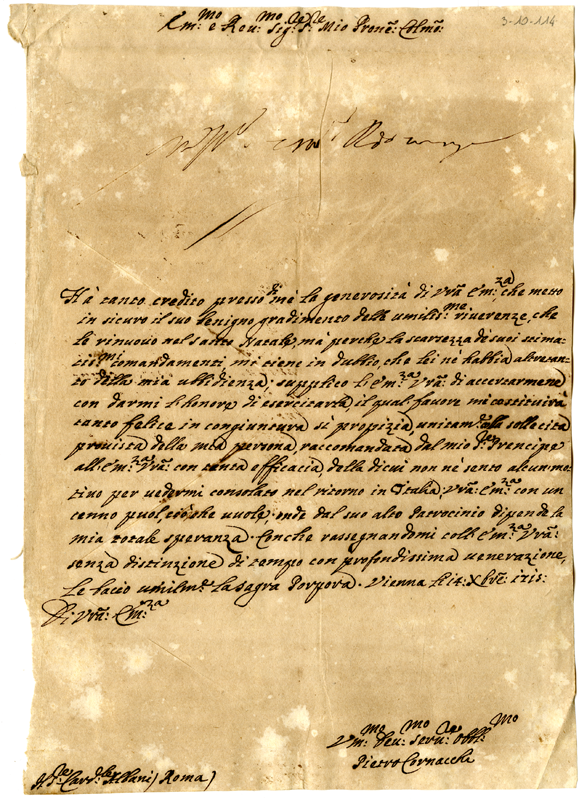 3-10-114
Em:mo e Reu:mo Sig:re P:re Mio Pronẽ: Colmõ:
Hà tanto credito presso di mè la generosità di Vrã Em:za che metto
in sicuro il suo benigno gradimento delle umilis:me riverenze, che
le rinuovo nel santo Natale, mà perche la scarsezza de suoi stima-
tis:mi comandamenti, mi tiene in dubbio, che lei nè habbia altretan-
to della mia ubbidienza; supplico l'Em:za Vrã: di accertarmene
con darmi l'honore di esercitarla, il qual favore mi costituirà
tanto felice in congiuntura si propizia, unitam:te alla sollecita
provista della mia persona, raccomandata dal mio S:re Prencipe
all'Em:za Vrã: con tanta efficacia, della di cui non nè sento alcun mo-
tivo per vedermi consolato nel ritorno in Italia; Vrã: Em:za con un
cenno puol, ciò che vuole, onde dal suo alto Patrocinio dipende la
mia totale speranza. Conche rassegnandomi coll'Em:za Vrã:
senza distinzione di tempo con profondissima venerazione,
Le faccio umilm:te la Sagra Porpora. Vienna li
Di Vrã: Em:za
Um:mo Deu:mo Seru:re Obbl:mo
Pietro Cornacchia
S:re Card:le Albani) Roma)